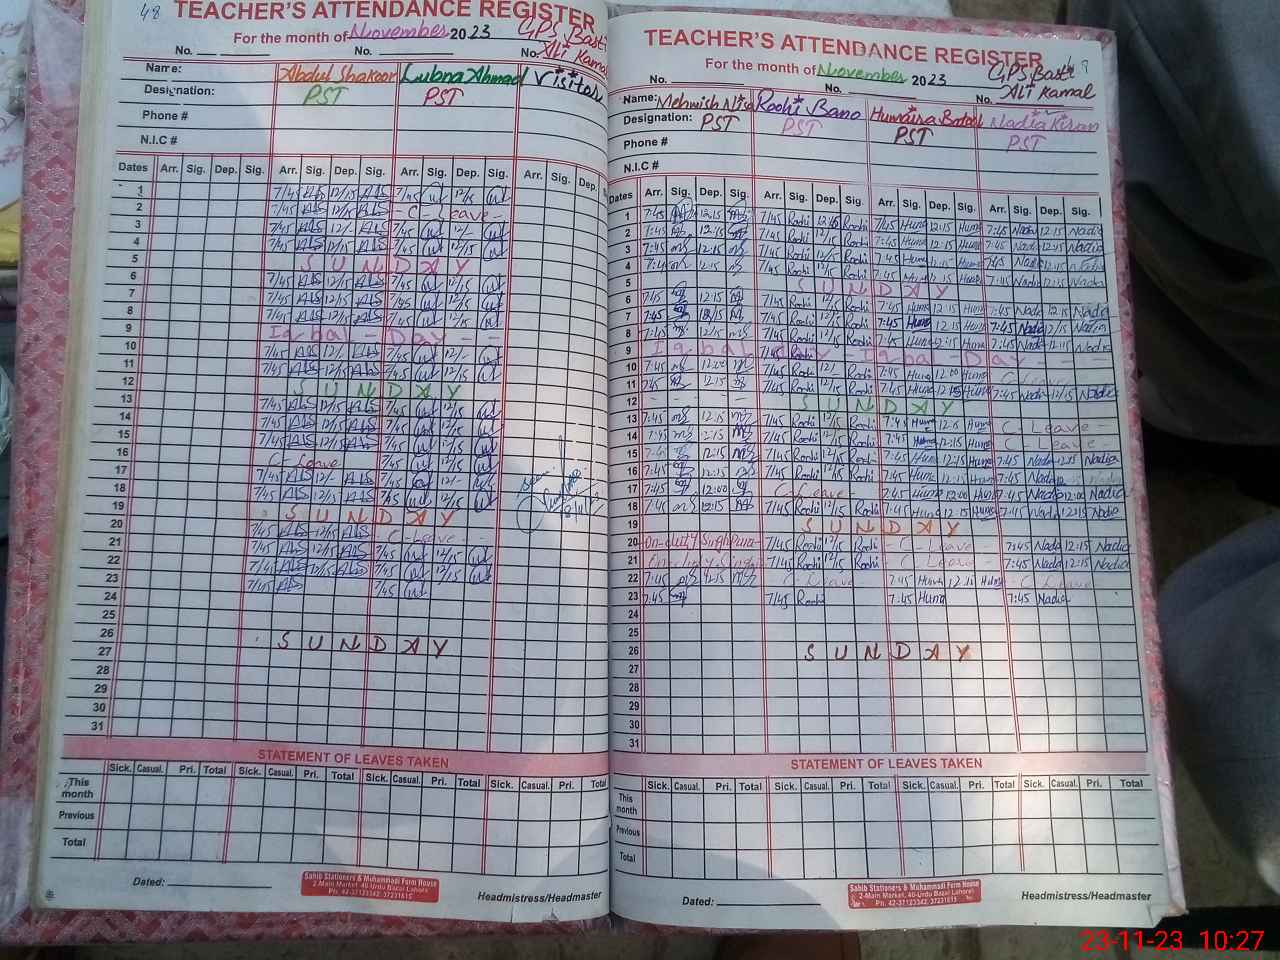 48
TEACHER'S ATTENDANCE REGISTER
For the month of November 2023 GPS Basti
No. No. No. Ali Kamal
Name: Abdul Shakoor Lubna Ahmad Visitor
Designation: PST PST
Phone #
N.I.C #
Dates Arr. Sig. Dep. Sig. Arr. Sig. Dep. Sig. Arr. Sig. Dep. Sig. Arr. Sig. Dep.
1 7/45 12/15 7/45 12/15
2 7/45 12/15 - C - Leave -
3 7/45 12/- 7/45 12/-
4 7/45 12/15 7/45 12/15
5 SUNDAY
6 7/45 12/15 7/45 12/15
7 7/45 12/15 7/45 12/15
8 7/45 12/15 7/45 12/15
9 Iqbal - Day - -
10 7/45 12/- 7/45 12/-
11 7/45 12/15 7/45 12/15
12 SUNDAY
13 7/45 12/15 7/45 12/15
14 7/45 12/15 7/45 12/15
15 7/45 12/15 7/45 12/15
16 C - Leave 7/45 12/15
17 7/45 12/- 7/45 12/-
18 7/45 12/15 7/45 12/15
19 SUNDAY
20 7/45 12/15 - C - Leave -
21 7/45 12/15 7/45 12/15
22 7/45 12/15 7/45 12/15
23 7/45 7/45
24
25
26 SUNDAY
27
28
29
30
31
STATEMENT OF LEAVES TAKEN
Sick. Casual. Pri. Total Sick. Casual. Pri. Total Sick. Casual. Pri. Total Sick. Casual. Pri. Total
This month
Previous
Total
Dated:
Sahib Stationers & Muhammadi Form House
2-Main Market, 40-Urdu Bazar Lahore
Ph. 42-37123342, 37231615
Headmistress/Headmaster
TEACHER'S ATTENDANCE REGISTER
For the month of November 2023 GPS Basti
No. No. No. Ali Kamal
Name: Mehwish Nisa Roohi Bano Humaira Batool Nadia Kiran
Designation: PST PST PST PST
Phone #
N.I.C #
Dates Arr. Sig. Dep. Sig. Arr. Sig. Dep. Sig. Arr. Sig. Dep. Sig. Arr. Sig. Dep. Sig.
1 7:45 12:15 7/45 Roohi 12:15 Roohi 7:45 Huma 12:15 Huma 7:45 Nadia 12:15 Nadia
2 7:45 12:15 7/45 Roohi 12/15 Roohi 7:45 Huma 12:15 Huma 7:45 Nadia 12:15 Nadia
3 7:45 12:15 7/45 Roohi 12/15 Roohi 7:45 Huma 12:15 Huma 7:45 Nadia Nadia
4 12:15 7/45 Roohi 12/15 Roohi 7:45 Huma 12:15 Huma 7:45 Nadia 12:15 Nadia
5 SUNDAY
6 7:45 12:15 7/45 Roohi 12/15 Roohi 7:45 Huma 12:15 Huma 7:45 Nadia 12:15 Nadia
7 7:45 12/15 7/45 Roohi 12/15 Roohi 7:45 Huma 12:15 Huma 7:45 Nadia 12/15 Nadia
8 7:45 12/15 7/45 Roohi 12/15 Roohi 7:45 Huma 12:15 Huma 7:45 Nadia 12:15 Nadia
9 Iqbal 7/45 Roohi - Iqbal - Day - -
10 7:45 12:00 7/45 Roohi 12/ Roohi 7:45 Huma 12:00 Huma C Leave
11 7:45 12:15 7/45 Roohi 12/15 Roohi 7:45 Huma 12:15 Huma 7:45 Nadia 12/15 Nadia
12 SUNDAY
13 7:45 12:15 7/45 Roohi 12/15 Roohi 7:45 Huma 12:15 Huma C - Leave -
14 7:45 12:15 7/45 Roohi 12/15 Roohi 7:45 Huma 12:15 Huma - C - Leave -
15 7:45 12:15 7/45 Roohi 12/15 Roohi 7:45 Huma 12:15 Huma 7:45 Nadia 12:15 Nadia
16 7:45 12:15 7/45 Roohi 12/15 Roohi 7:45 Huma 12:15 Huma 7:45 Nadia 12:15
17 7:45 12:00 C - Leave - 7:45 Huma 12:00 Huma 7:45 Nadia 12:00 Nadia
18 7:45 12:15 7/45 Roohi 12/15 Roohi 7:45 Huma 12:15 Huma 7:45 Nadia 12:15 Nadia
19 SUNDAY
20 On-duty 7/45 Roohi 12/15 Roohi - C - Leave - 7:45 Nadia 12:15 Nadia
21 7/45 Roohi 12/15 Roohi C Leave 7:45 Nadia 12:15 Nadia
22 7:45 12:15 - C Leave - 7:45 Huma 12:15 Huma - C Leave
23 7:45 7/45 Roohi 7:45 Huma 7:45 Nadia
24
25
26 SUNDAY
27
28
29
30
31
STATEMENT OF LEAVES TAKEN
Sick. Casual. Pri. Total Sick. Casual. Pri. Total Sick. Casual. Pri. Total Sick. Casual. Pri. Total
This month
Previous
Total
Dated:
Sahib Stationers & Muhammadi Form House
2-Main Market, 40-Urdu Bazar Lahore
Ph. 42-37123342, 37231615
Headmistress/Headmaster
23-11-23 10:27